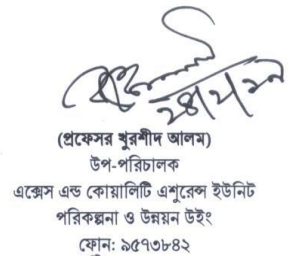 (প্রফেসর খুরশীদ আলম)
উপ-পরিচালক
এক্সেস এন্ড কোয়ালিটি এশুরেন্স ইউনিট
পরিকল্পনা ও উন্নয়ন উইং
ফোন: ৯৫৭৩৮৪২